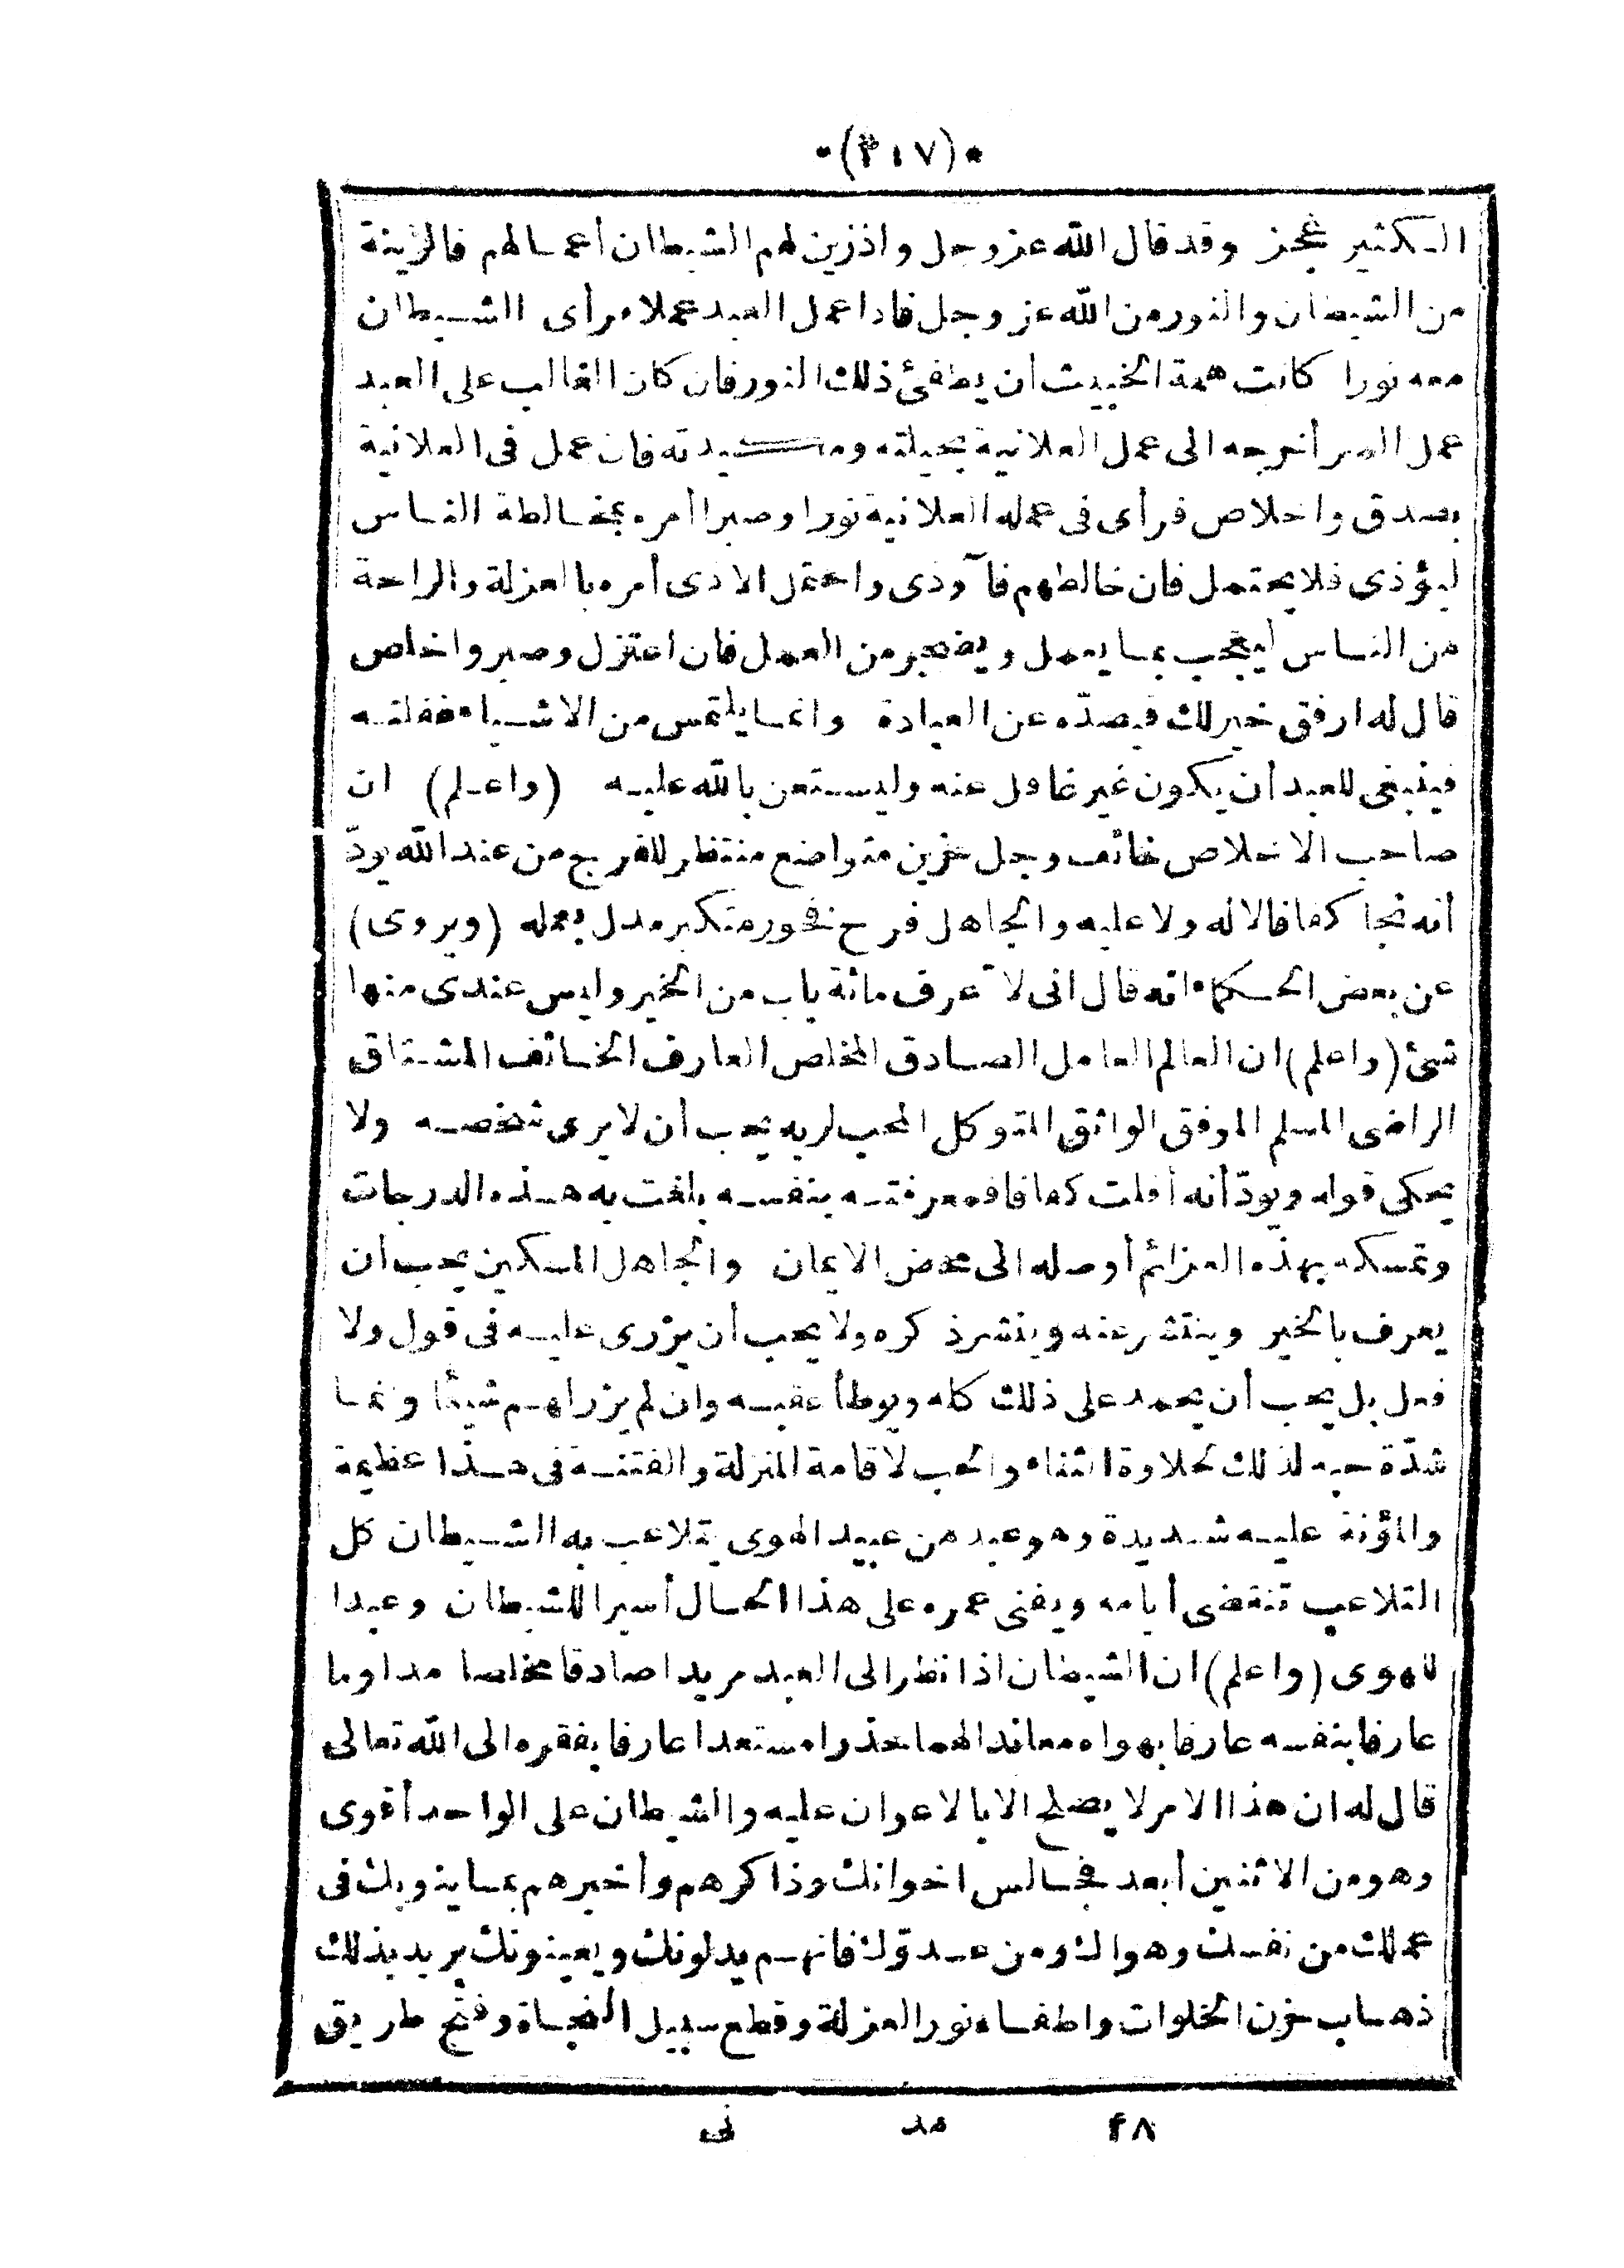 *(٢١٧)*
الكثير عجز وقد قال الله عز وجل واذزين لهم الشيطان أعمالهم فالزينة
من الشيطان والنور من الله عز وجل فاذا عمل العبد عملا ورأى الشيطان
معه نورا كانت همة الخبيث أن يطفئ ذلك النور فان كان الغالب على العبد
عمل السر أخرجه الى عمل العلانية بحيلته ومكيدته فان عمل فى العلانية
بصدق واخلاص فرأى فى عمله العلانية نورا وصبرا أمره بمخالطة الناس
ليؤذى فلا يحتمل فان خالطهم فآوذى واحتمل الاذى أمره بالعزلة والراحة
من الناس ليعجب بما يعمل ويضجر من العمل فان اعتزل وصبر واخلص
قال له ارفق خير لك فيصدّه عن العبادة وانما يلتمس من الاشياء غفلته
فينبغى للعبد أن يكون غير غافل عنه وليستعن بالله عليه (واعلم) ان
صاحب الاخلاص خائف وجل حزين متواضع منتظر للفرج من عند الله يودّ
أنه نجا كفافا لا له ولا عليه والجاهل فرح فخور متكبر مدل بعمله (ويروى)
عن بعض الحكماء انه قال انى لا عرف مائة باب من الخير وليس عندى منها
شئ (واعلم) ان العالم العامل الصادق المخلص العارف الخائف المشتاق
الراضى المسلم الموفق الواثق المتوكل المحب لربه يحب أن لا يرى شخصه ولا
يحكى قوله ويودّ أنه أفلت كفافا فمعرفته بنفسه بلغت به هذه الدرجات
وتمسكه بهذه العزائم أوصله الى محض الايمان والجاهل المسكين يحب أن
يعرف بالخير وينتشر عنه وينشر ذكره ولا يحب أن يزرى عليه فى قول ولا
فعل بل يحب أن يحمد على ذلك كله ويوطأ عقبه وان لم يزراهم شيئا وانما
شدّة حبه لذلك لحلاوة الثناء والحب لاقامة المنزلة والفتنة فى هذا عظيمة
والمؤنة عليه شديدة وهو عبد من عبيد الهوى يتلاعب به الشيطان كل
التلاعب تنقضى أيامه ويفنى عمره على هذا الحال أسيرا للشيطان وعبدا
للهوى (واعلم) ان الشيطان اذا نظر الى العبد مريدا صادقا مخلصا مداوما
عارفا بنفسه عارفا بهواه معاندا لهما حذرا مستعدا عارفا بفقره الى الله تعالى
قال له ان هذا الامر لا يصلح الا بالاعوان عليه والشيطان على الواحد أقوى
وهو من الاثنين أبعد فجالس اخوانك وذاكرهم وأخبرهم بما ينوبك فى
عملك من نفسك وهواك ومن عدوّك فانهم يدلونك ويعينونك يريد بذلك
ذهاب حزن الخلوات واطفاء نور العزلة وقطع سبيل النجاة وفتح طريق
٢٨ مد نى